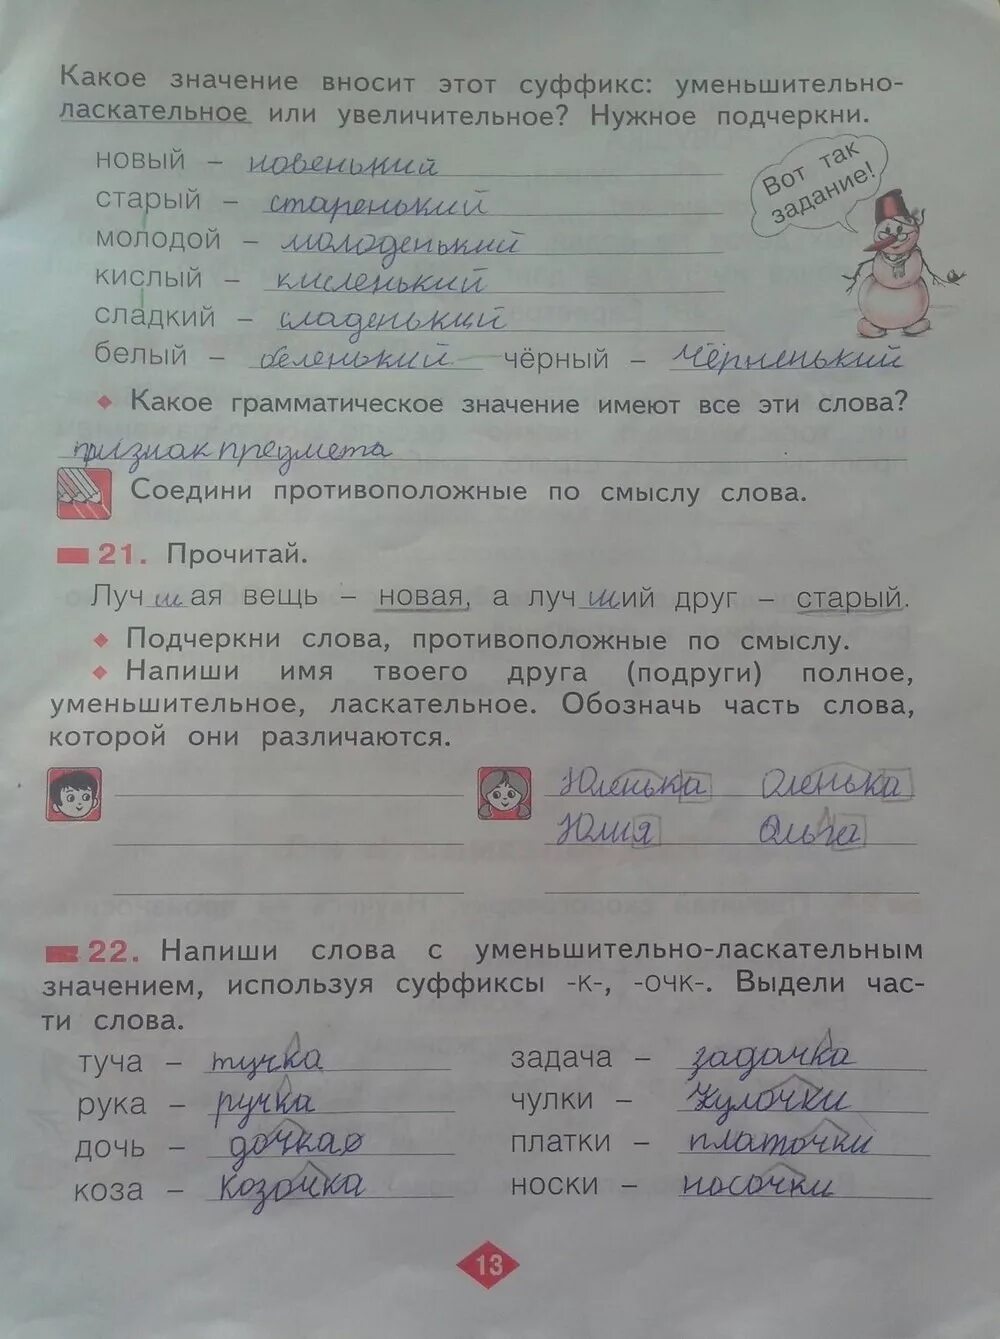 Какое значение вносит этот суффикс: уменьшительно-
ласкательное или увеличительное? Нужное подчеркни.
Вот так
задание!
новый – новенький
старый – старенький
молодой – молоденький
кислый – кисленький
сладкий – сладенький
белый – беленький чёрный – Чёрненький
Какое грамматическое значение имеют все эти слова?
признак предмета
Соедини противоположные по смыслу слова.
21. Прочитай.
Луч ш ая вещь – новая, а луч ш ий друг – старый.
Подчеркни слова, противоположные по смыслу.
Напиши имя твоего друга (подруги) полное,
уменьшительное, ласкательное. Обозначь часть слова,
которой они различаются.
Юленька Оленька
Юлия Ольга
22. Напиши слова с уменьшительно-ласкательным
значением, используя суффиксы -к-, -очк-. Выдели час-
ти слова.
туча – тучка задача – задачка
рука – ручка чулки – чулочки
дочь – дочка платки – платочки
коза – козочка носки – носочки
13